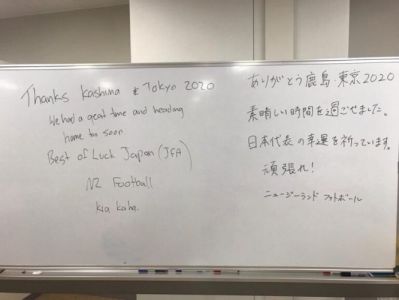 Thanks Kashima & Tokyo 2020
We had a great time and heading
home too soon
Best of Luck Japan (JFA)
NZ Football
kia kaha.
ありがとう鹿島 東京2020
素晴しい時間を過ごせました。
日本代表の幸運を祈っています。
頑張れ!
ニュージーランド フットボール